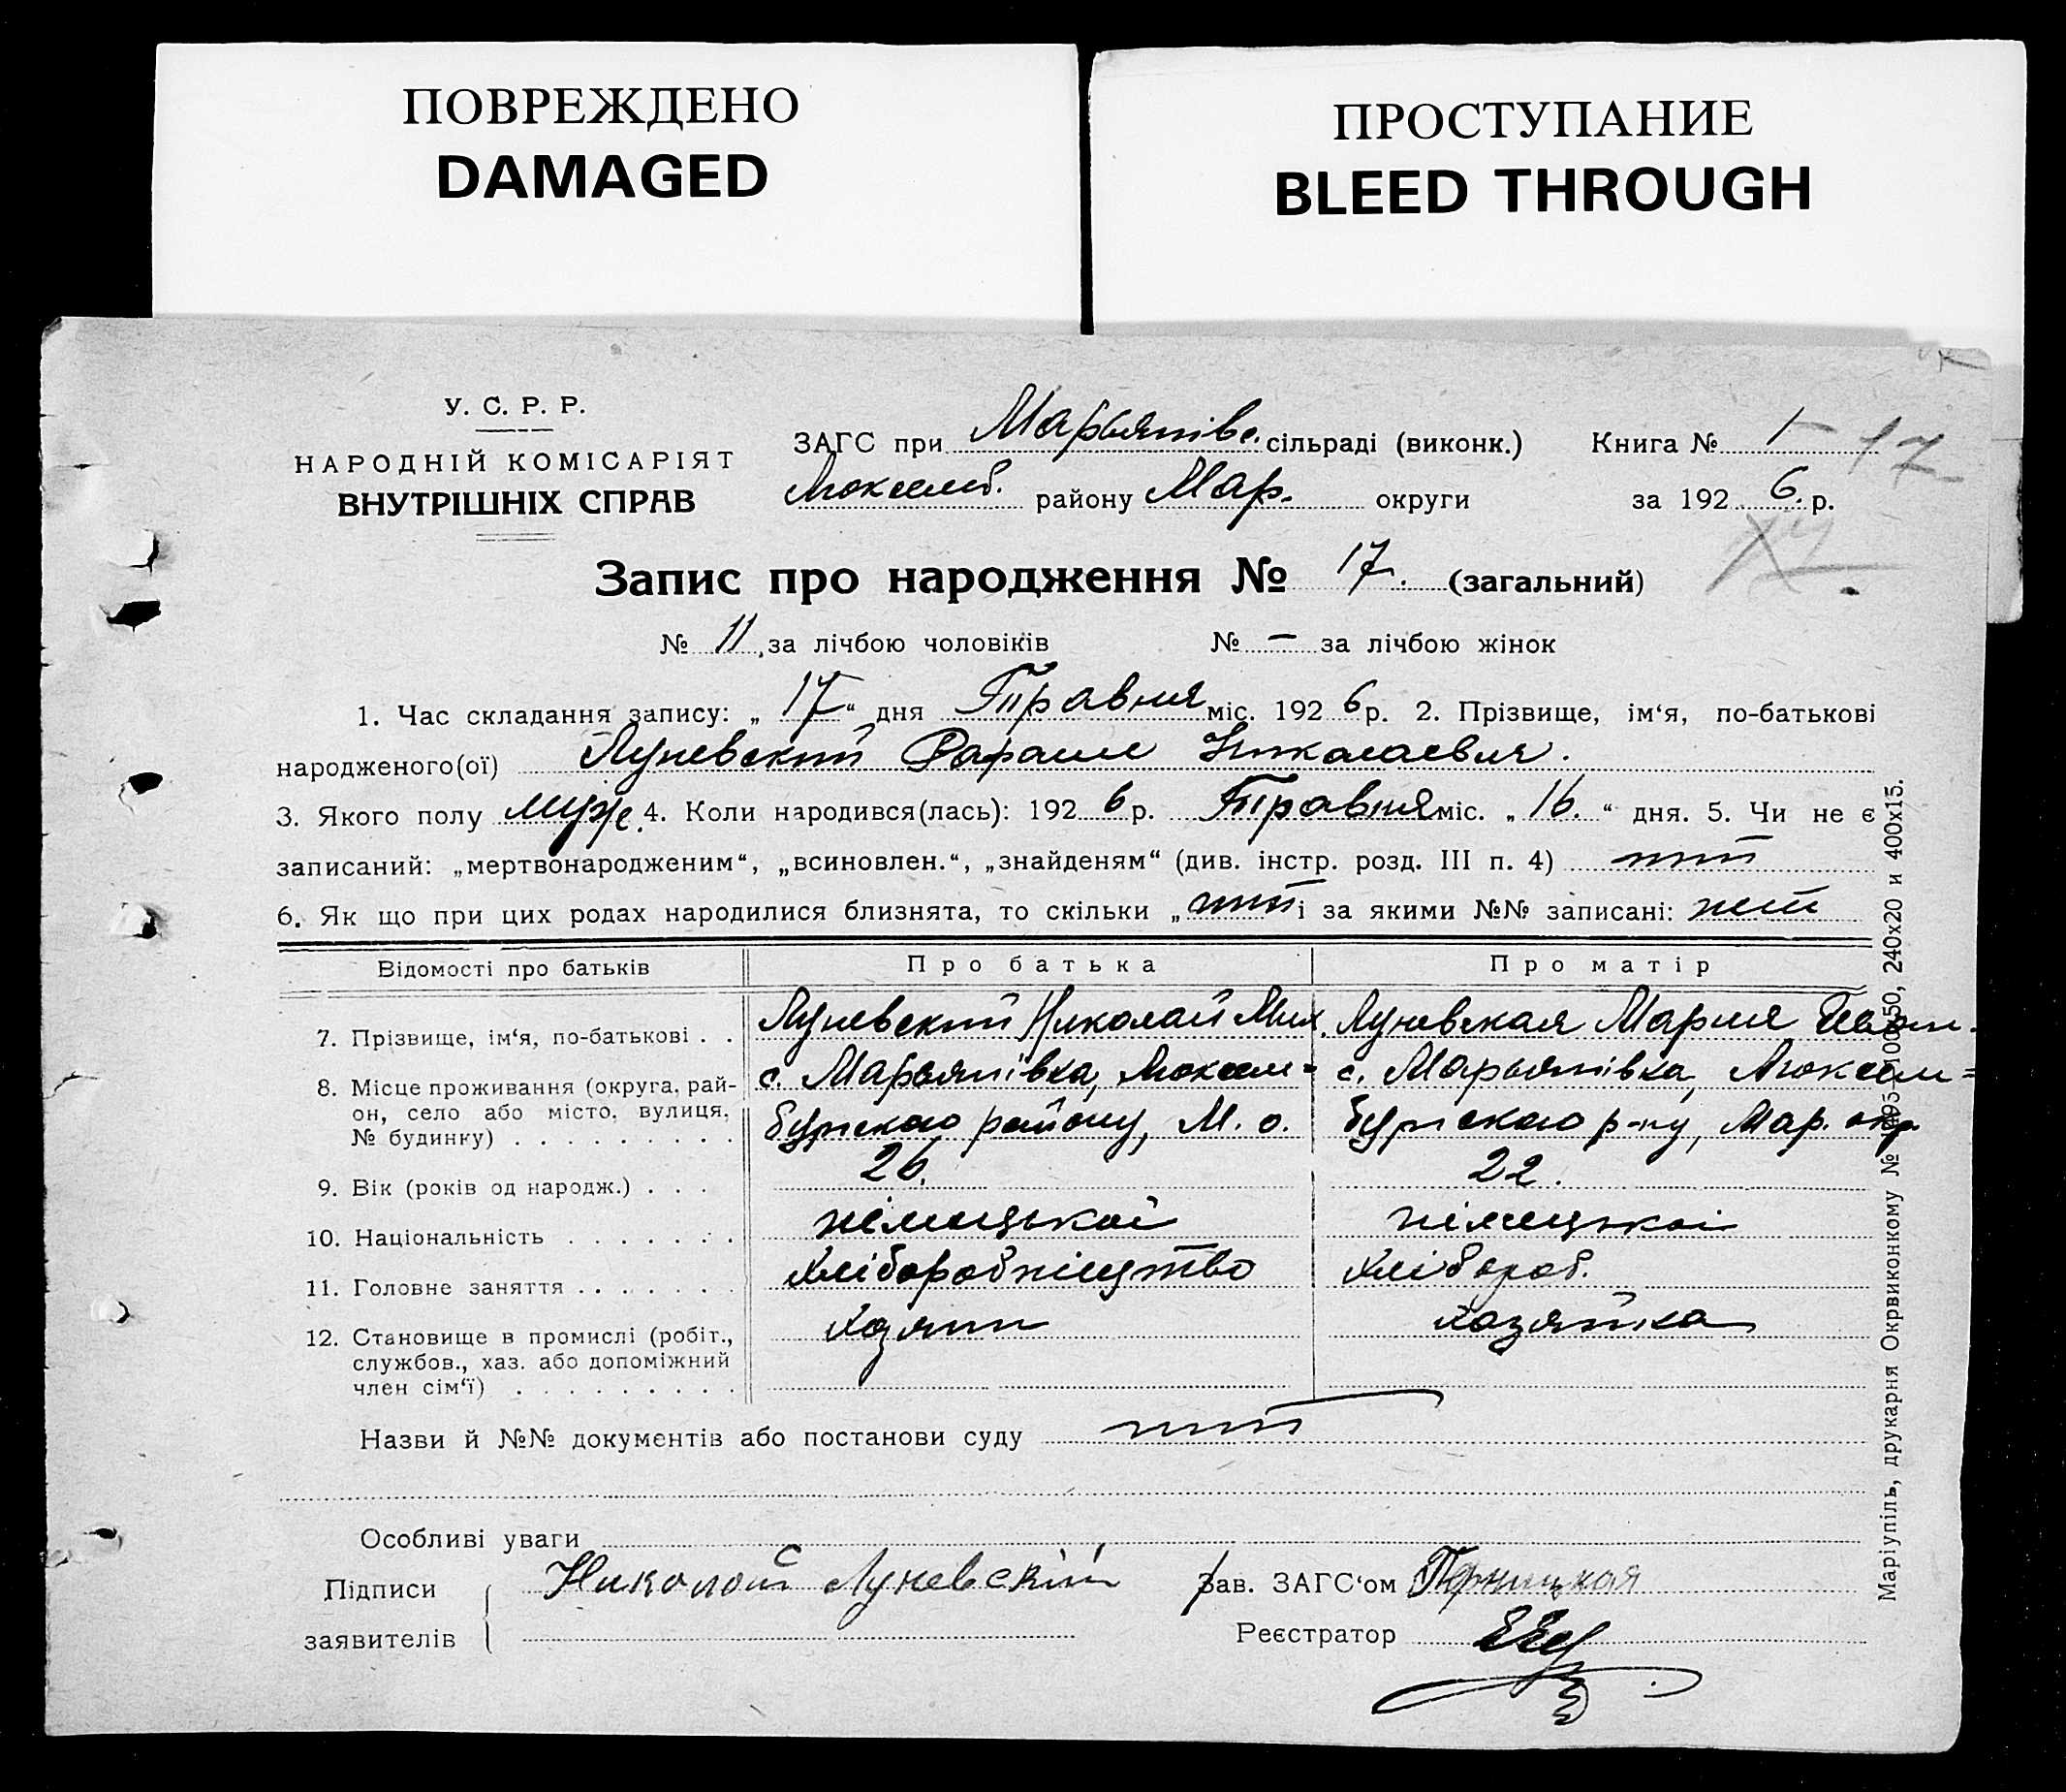 ПОВРЕЖДЕНО
DAMAGED
ПРОСТУПАНИЕ
BLEED THROUGH
У. С. Р. Р.
НАРОДНІЙ КОМІСАРІЯТ
ВНУТРІШНІХ СПРАВ
ЗАГС при Марьянівс. сільраді (виконк.)
Люксемб. району Мар. округи
Книга № 1
17
за 1926. р.
Запис про народження № 17. (загальний)
№ 11, за лічбою чоловіків № — за лічбою жінок
1. Час складання запису: „17“ дня Травня міс. 1926 р. 2. Прізвище, ім‘я, по-батькові
народженого(ої) Луневский Рафаил Николаевич.
3. Якого полу муж. 4. Коли народився(лась): 1926 р. Травня міс. „16.“ дня. 5. Чи не є
записаний: „мертвонародженим“, „всиновлен.“, „знайденям“ (див. інстр. розд. III п. 4) нет
6. Як що при цих родах народилися близнята, то скільки „нет і за якими №№ записані: нет
Відомості про батьків Про батька Про матір
7. Прізвище, ім‘я, по-батькові . . Луневский Николай Мих. Луневская Мария Иван.
8. Місце проживання (округа, рай- с. Марьянівка, Люксем= с. Марьянівка, Люксем=
он, село або місто, вулиця,
№ будинку) . . . . . . . . . бургскаго району, М. о. бургскаго р-ну, Мар. окр.
9. Вік (років од народж.) . . . 26. 22.
10. Національність . . . . . . . німецькоі німецькоі
11. Головне заняття . . . . . . . Хліборобництво Хлібороб.
12. Становище в промислі (робіт., Хозяин хозяйка
службов., хаз. або допоміжний
член сім‘ї) . . . . . . . . .
Назви й №№ документів або постанови суду нет
Особливі уваги
Підписи Николай Луневский Зав. ЗАГС‘ом
заявителів Реєстратор
Маріупіль, друкарня Окрвиконкому № 240х20 и 400х15.